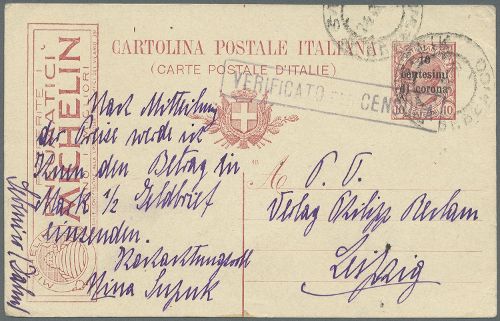 CARTOLINA POSTALE ITALIANA
(CARTE POSTALE D'ITALIE)
10
centesimi
di corona
10
VERIFICATO PER CENSURA
PREFERITE I
PNEUMATICI
MICHELIN
Nach Mitteilung
der Preise werde ich
Ihnen den Betrag in
Mark ½ Geldbrief
einsenden.
Hochachtungsvoll
Nina
A
P. T.
Verlag Philipp Reclam
Leipzig